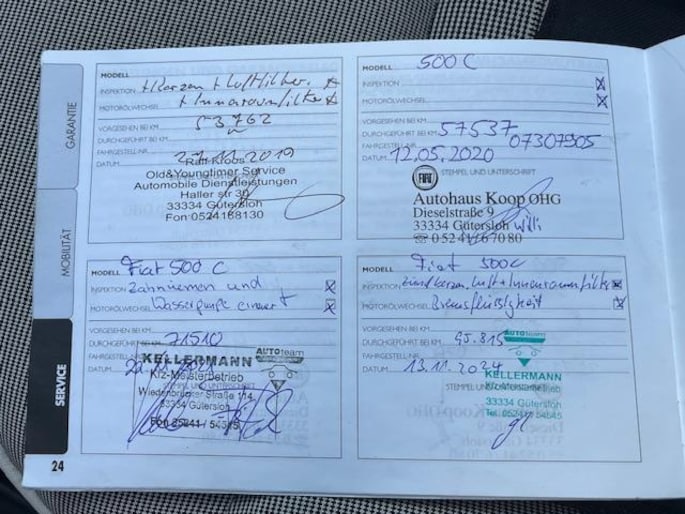 GARANTIE
MOBILITÄT
SERVICE
24
MODELL
+ Kerzen + Luftfilter.
INSPEKTION
+ Innenraumfilter
MOTORÖLWECHSEL
VORGESEHEN BEI KM
53762
DURCHGEFÜHRT BEI KM
FAHRGESTELL-NR.
DATUM 27.11.2019
Ralf Kroos
Old&Youngtimer Service
Automobile Dienstleistungen
Haller str 30
33334 Gütersloh
Fon 05241
MODELL 500 C
INSPEKTION
MOTORÖLWECHSEL
VORGESEHEN BEI KM
DURCHGEFÜHRT BEI KM 57537
FAHRGESTELL-NR. 07307905
DATUM 12.05.2020
STEMPEL UND UNTERSCHRIFT
FIAT
Autohaus Koop OHG
Dieselstraße 9
33334 Gütersloh
MODELL Fiat 500 C
INSPEKTION Zahnriemen und
MOTORÖLWECHSEL Wasserpumpe erneuert
VORGESEHEN BEI KM
DURCHGEFÜHRT BEI KM 71510
FAHRGESTELL-NR.
DATUM
KELLERMANN
AUTOteam
Kfz-Meisterbetrieb
STEMPEL UND UNTERSCHRIFT
Wiedenbrücker Straße 114
33334 Gütersloh
MODELL Fiat 500C
INSPEKTION Zündkerzen, Luft + Innenraumfilter
MOTORÖLWECHSEL Bremsflüssigkeit
VORGESEHEN BEI KM
DURCHGEFÜHRT BEI KM 95.815
FAHRGESTELL-NR.
DATUM 13.11.2024
AUTOteam
KELLERMANN
STEMPEL UND UNTERSCHRIFT
Kfz-Meisterbetrieb
33334 Gütersloh